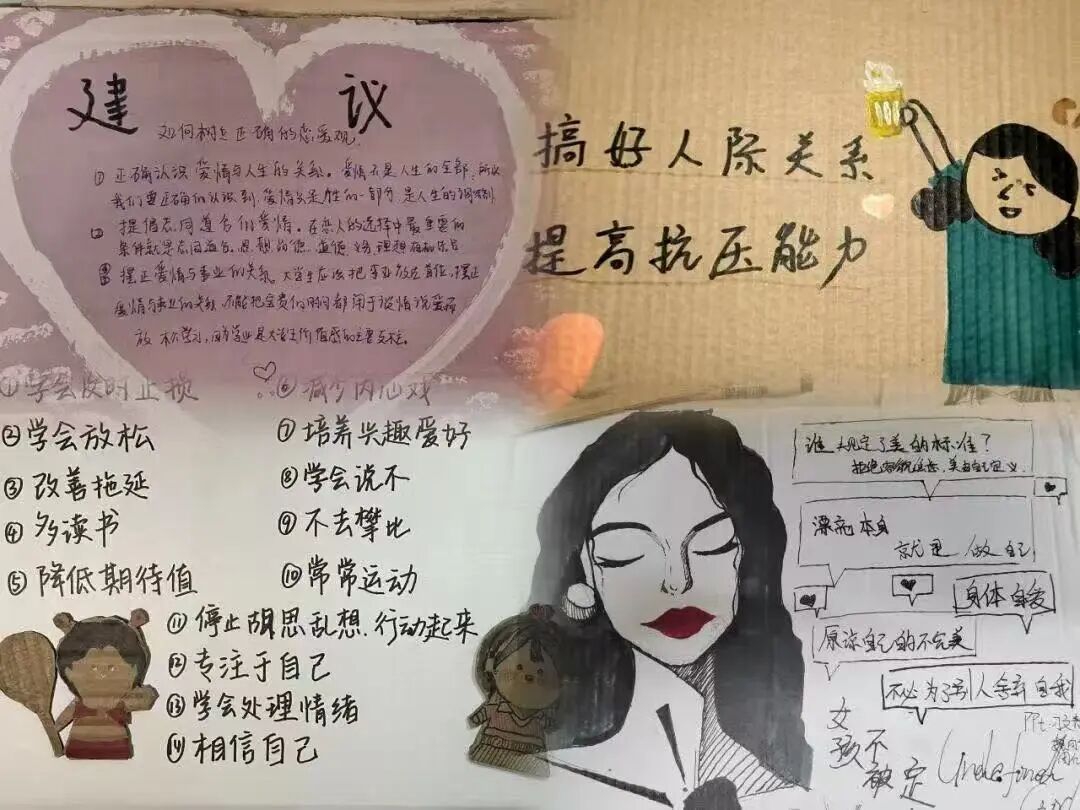 建 议
如何树立正确的恋爱观.
① 正确认识爱情与人生的关系。爱情不是人生的全部,所以
我们要正确的认识到,爱情只是生活的一部分,是人生的调味剂
② 提倡志同道合的爱情。在恋人的选择中最重要的
条件就是志同道合,思想品德、
③ 摆正爱情与事业的关系,大学生应该把事业放在首位,摆正
爱情与事业的关系,不能把宝贵的时间都用于谈情说爱而
放松学习,因为学业是大学生价值感的主要支柱。
搞好人际关系
提高抗压能力
①学会及时止损
②学会放松
③改善拖延
④多读书
⑤降低期待值
⑥减少内心戏
⑦培养兴趣爱好
⑧学会说不
⑨不去攀比
⑩常常运动
⑪停止胡思乱想.行动起来
⑫专注于自己
⑬学会处理情绪
⑭相信自己
谁规定了美的标准?
美由自己定义.
漂亮本身
就是做自己
身体自爱
原谅自己的不完美
不必为了别人牵率自我
女孩不被定
PPt: